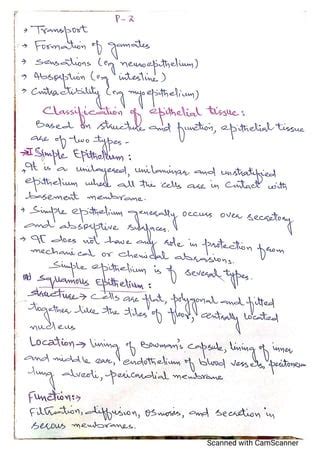 P-2
→ Transport
→ Formation of gamates
→ Sensations (eg neuroepithelium)
→ Absorption (eg intestine)
→ Contractibility (eg myoepithelium)
Classification of epithelial tissue:
Based on structure and function, epithelial tissue
are of two types -
→ I Simple Epithelium:
→ It is a unilayered, unilaminar and unstratified
epithelium where all the cells are in contact with
basement membrane.
→ Simple epithelium generally occurs over secretory
and absorptive surfaces.
→ It does not have any role in protection from
mechanical or chemical abrasions.
Simple epithelium is of several types.
Squamous Epithelium:
Structure → Cells are flat, polygonal and fitted
together like the tiles of floor, centrally located
nucleus
Location → lining of Bowman's capsule, lining of inner
and middle ear, endothelium of blood vessels, peritoneum
lung alveoli, pericardial membrane
Function: →
Filtration, diffusion, osmosis, and secretion in
serous membranes.
Scanned with CamScanner